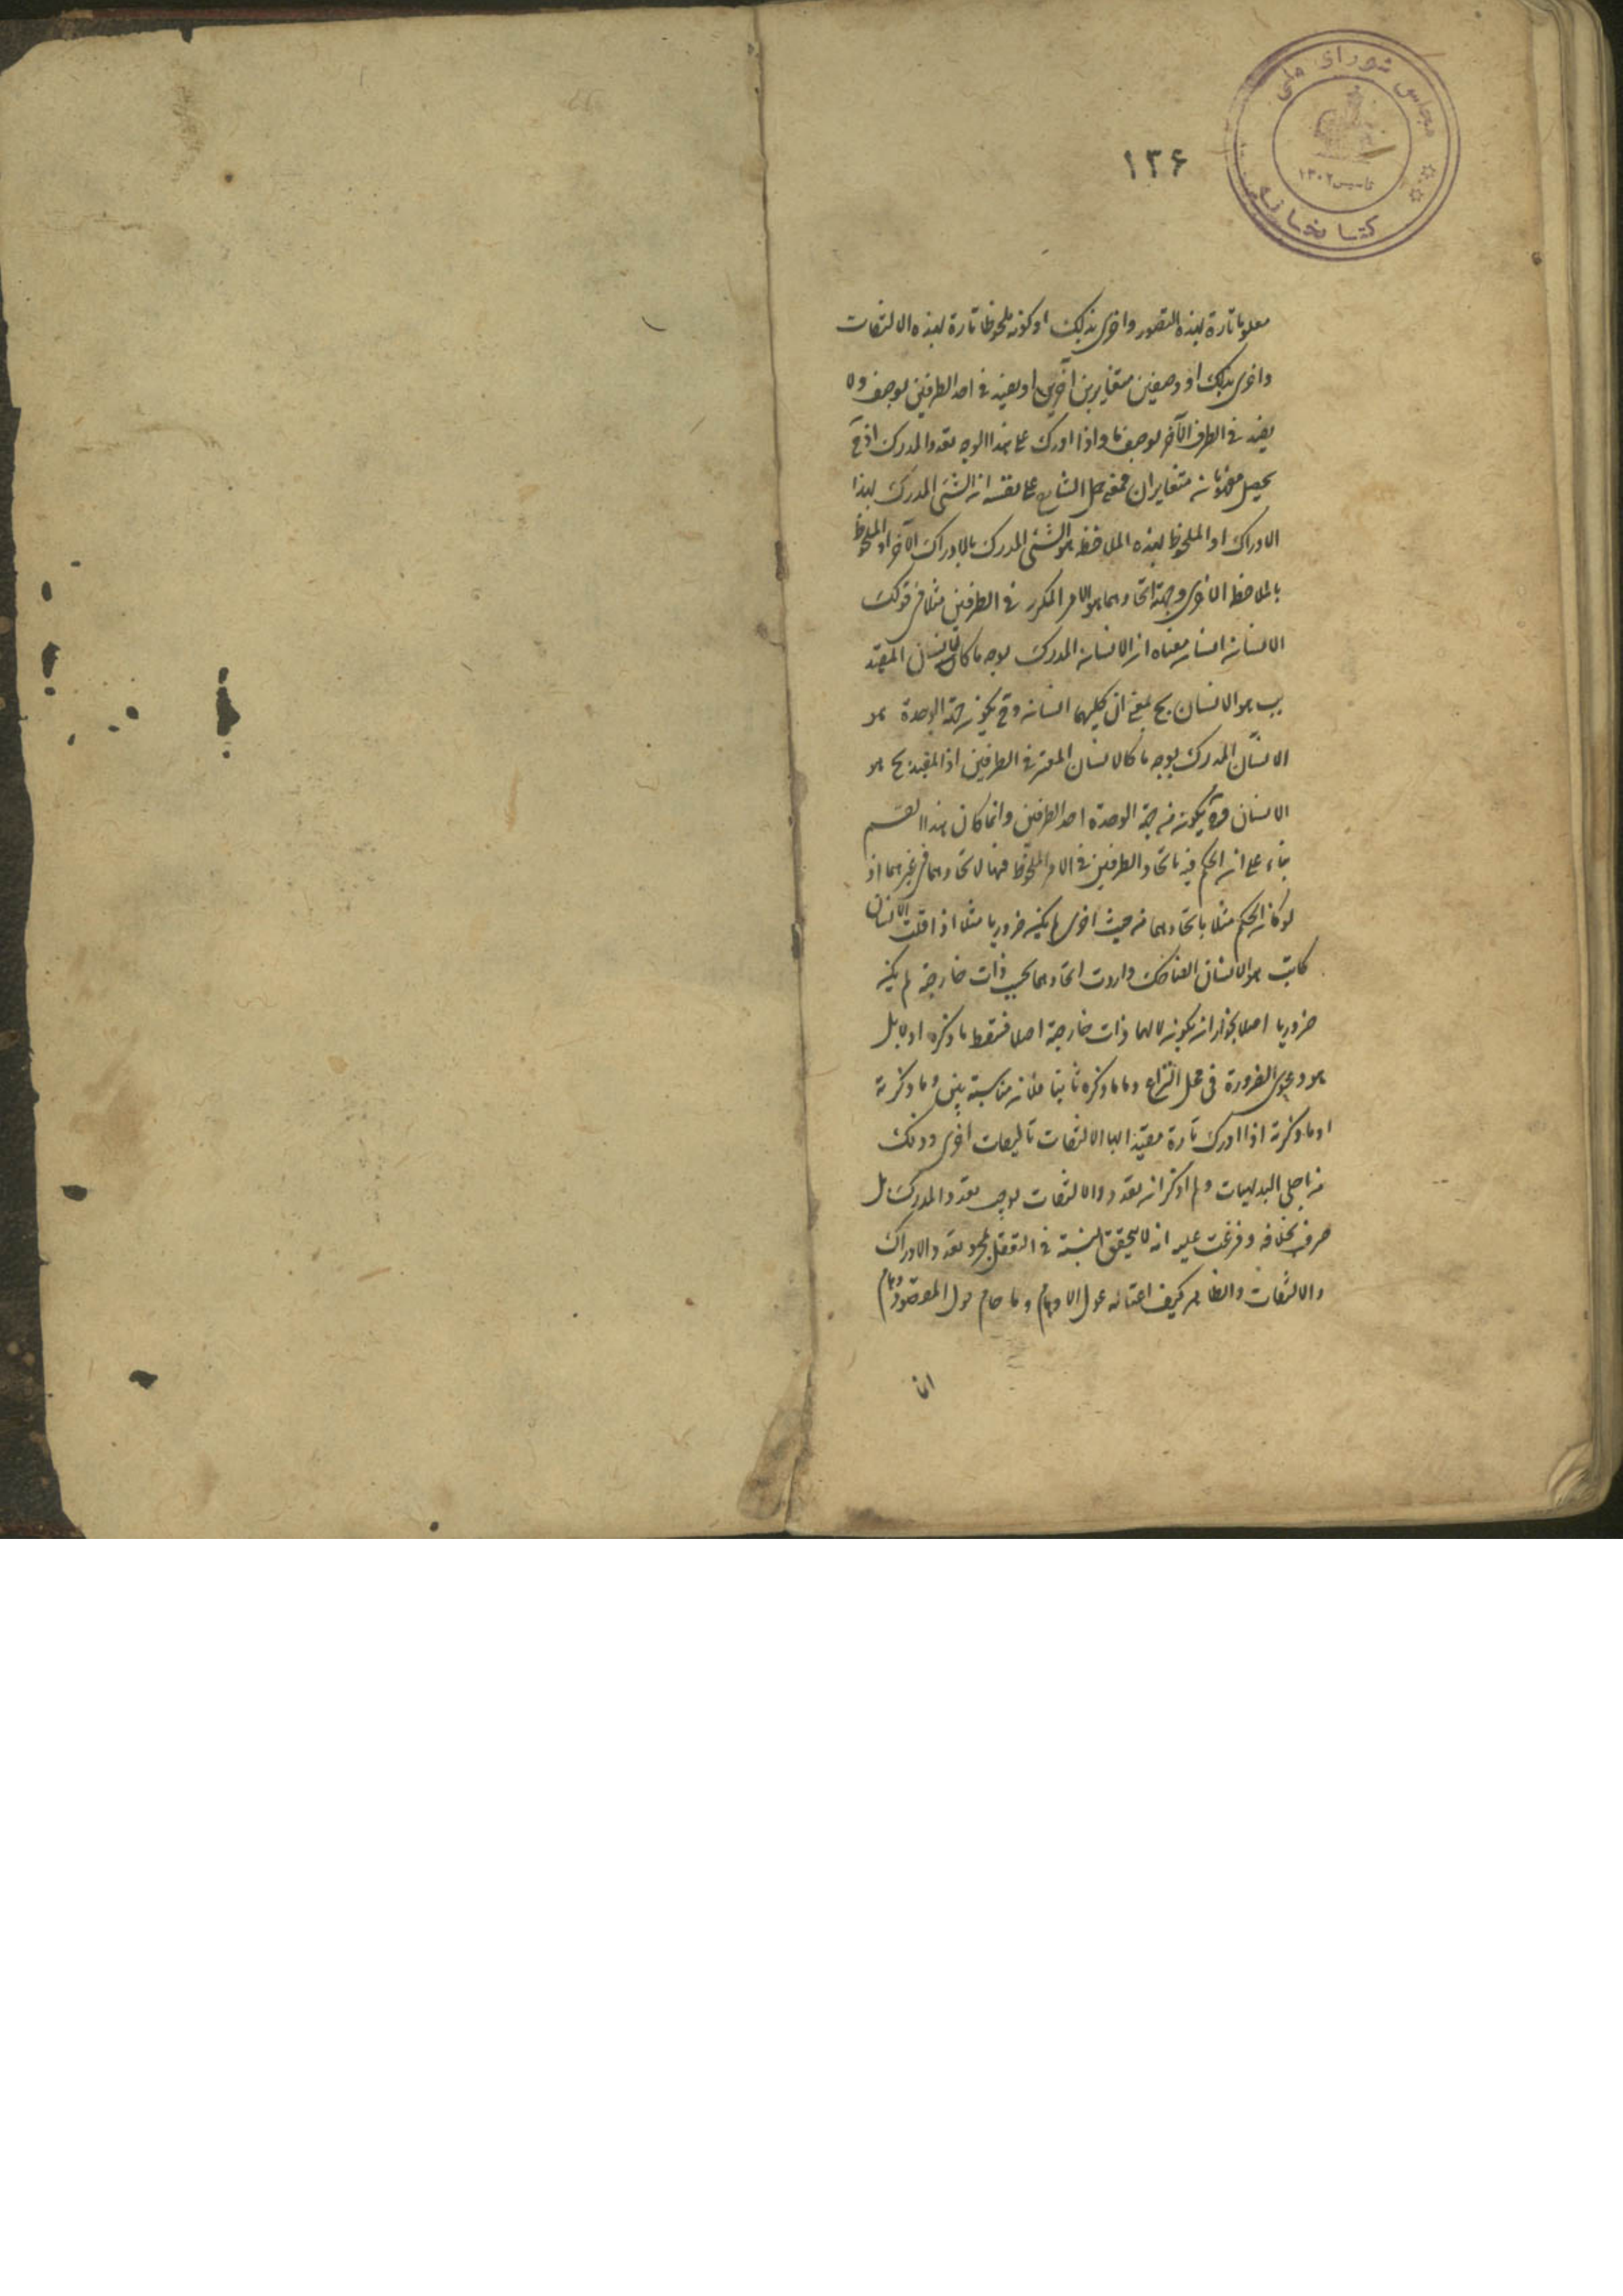 مجلس شورای ملی
تاسیس ۱۳۰۲
کتابخانه
۱۳۶
معلوما تارة بهذه التصور واخرى بذلك او كونه ملحوظا تارة بهذه الالتفات
واخرى بذلك او وصفين متغايرين آخرين او يقيد فى احد الطرفين بوصف ولا
يقيد فى الطرف الآخر بوصف ما واذا ادرك على هذا الوجه تعدد المدرك اذ ح
يحصل مفهومان متغايران فمعنى حمل الشئ على نفسه ان الشئ المدرك بهذا
الادراك او الملحوظ بهذه الملاحظة هو الشئ المدرك بالادراك الآخر او الملحوظ
بالملاحظة الاخرى وجهة اتحادهما هو الامر المكرر فى الطرفين مثلا فى قولك
الانسان انسان معناه ان الانسان المدرك بوجه ما كالانسان المقيد
بب هو الانسان بج بمعنى ان كليهما انسان وقد يكون جهة الوحدة هو
الانسان المدرك بوجه ما كالانسان المعتبر فى الطرفين اذ المقيد بج هو
الانسان وقد يكون جهة الوحدة احد الطرفين وانما كان هذا القسم
بناء على ان الحكم فيه باتحاد الطرفين فى الامر الملحوظ فيهما لاتحادهما فى غيرهما اذ
لو كان الحكم مثلا باتحادهما من حيث اخرى لم يكن ضروريا مثلا اذا قلت الانسان
كاتب هو الانسان الضاحك واردت اتحادهما بحسب ذات خارجية لم يكن
ضروريا اصلا لجواز ان يكون لا لهما ذات خارجية اصلا فسقط ما ذكره اولا بل
هو دعوى الضرورة فى محل النزاع واما ما ذكره ثانيا فلانه مناسبة بين وما ذكرته
او ما ذكرته اذا ادرك تارة مقيدا بالالتفات اخرى وذلك
من اجلى البديهيات ولم اذكر ان تعدد الالتفات يوجب تعدد المدرك بل
صرف بخلافه وفرغت عليه انه لا يتحقق النسبة فى التعقل بمجرد تعدد الادراك
والالتفات والظاهر كيف حول الاوهام وما حام حول المقصود وهام
انا